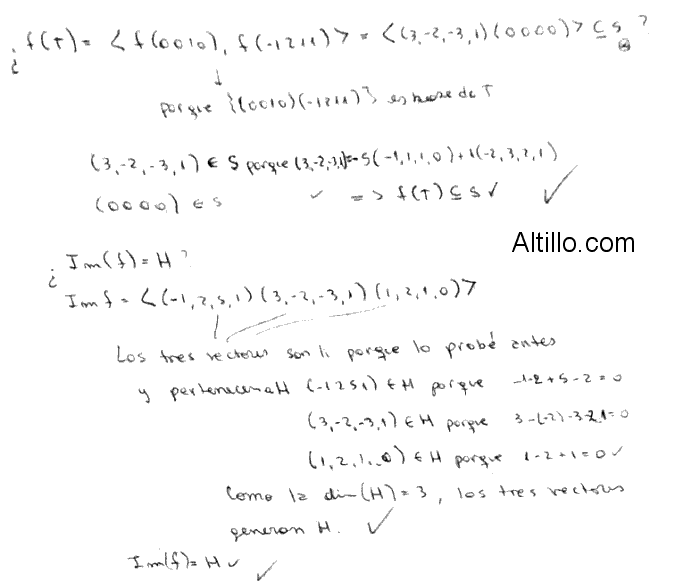 ¿ f(T) = < f(0010), f(-1211) > = <(3,-2,-3,1)(0000)> ⊆ S ?
↓
porque {(0010)(-1211)} es base de T
(3,-2,-3,1) ∈ S porque (3,-2,-3,1)=-5(-1,1,1,0)+1(-2,3,2,1)
(0000) ∈ S ✓ => f(T) ⊆ S ✓ ✓
Altillo.com
¿ Im(f) = H ?
Im f = <(-1,2,5,1)(3,-2,-3,1)(1,2,1,0)>
Los tres vectores son li porque lo probé antes
y pertenecen a H (-1251) ∈ H porque -1-2+5-2=0
(3,-2,-3,1) ∈ H porque 3-(-2)-3-2.1=0
(1,2,1,0) ∈ H porque 1-2+1=0 ✓
Como la dim(H)=3, los tres vectores
generan H. ✓
Im(f)=H ✓ ✓